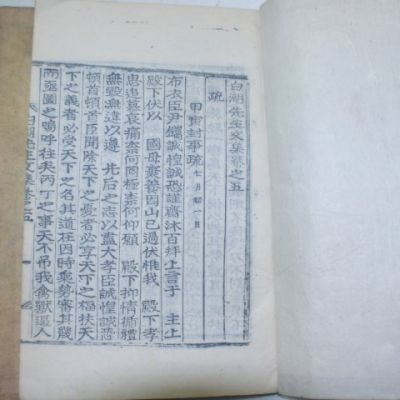 白湖先生文集卷之五
疏
甲寅封事疏 七月初一日
布衣臣尹鑴誠惶誠恐謹齋沐百拜上言于 主上
殿下伏以 國母喪善因山已過伏惟我 殿下孝
思追慕哀痛柰何罔極柰何仰願 殿下抑情循體
無毀無違以遵 先后之志以盡大孝臣誠惶誠恐
頓首頓首臣聞除天下之憂者必享天下之福扶天
下之義者必受天下之名其道在因時乘勢審其幾
而亟圖之嗚呼往矣丙丁之事天不吊我禽獸逼人
白湖先生文集卷之五